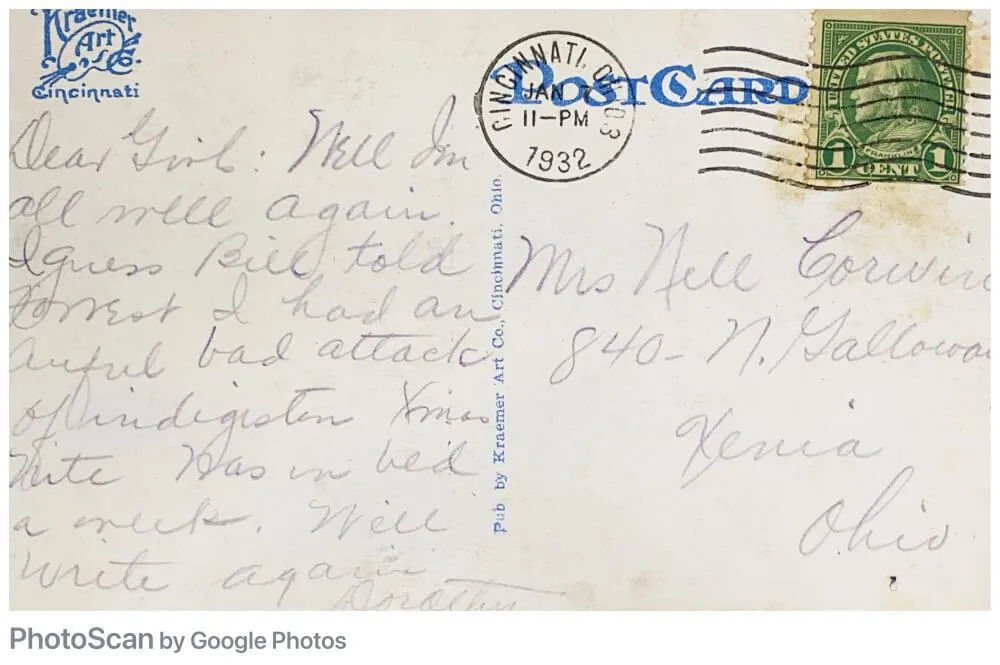 Kraemer
Art
Co.
Cincinnati
Dear Girl: Well I'm
all well again.
I guess Bill told
Forrest I had an
awful bad attack
of indigestion Xmas
Nite Was in bed
a week. Will
write again
Dorothy
Pub. by Kraemer Art Co., Cincinnati, Ohio.
POST CARD
CINCINNATI, OHIO
JAN 7
11-PM
1932
UNITED STATES POSTAGE
FRANKLIN
1 CENT 1
Mrs Nell Corwin
840- N. Galloway
Xenia
Ohio
PhotoScan by Google Photos